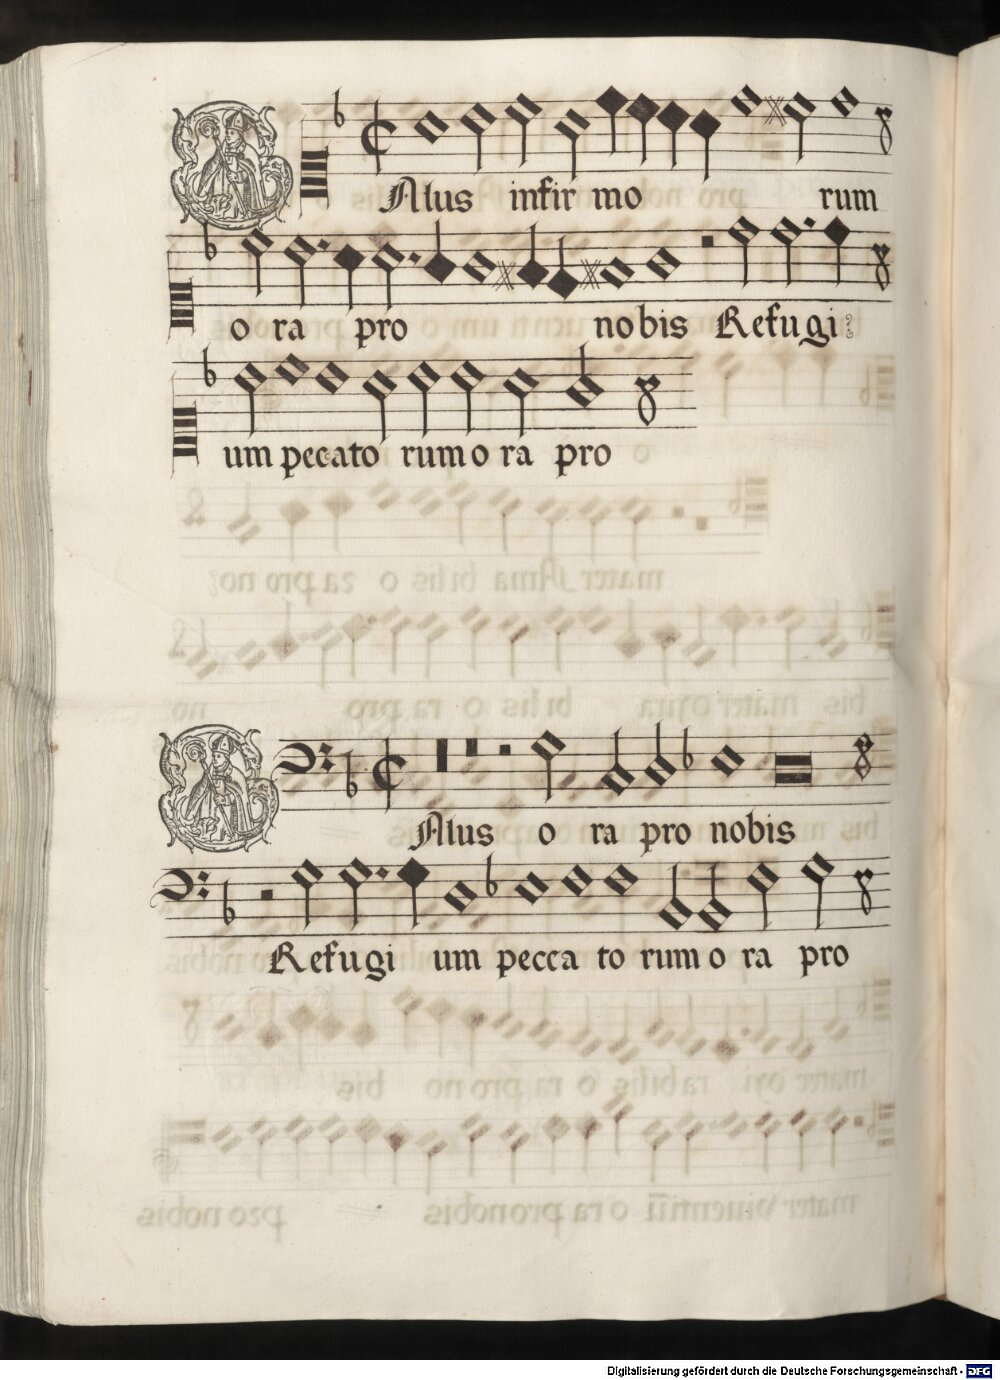 SAlus infir mo rum
o ra pro no bis Refugi
um pecato rum o ra pro
SAlus o ra pro nobis
Refugi um pecca to rum o ra pro
Digitalisierung gefördert durch die Deutsche Forschungsgemeinschaft - DFG